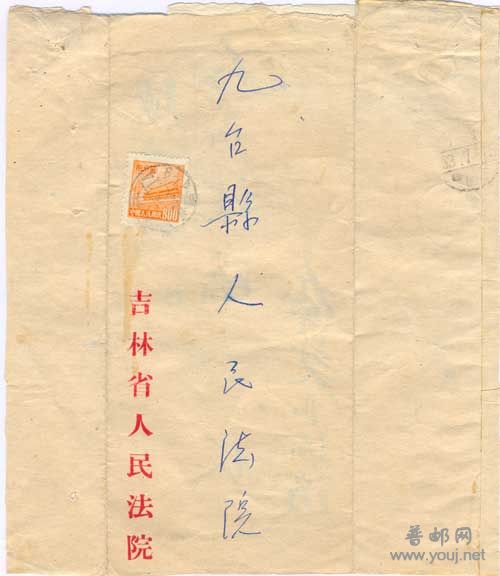 九台縣人民法院
吉林省人民法院
800
普邮网
www.youj.net